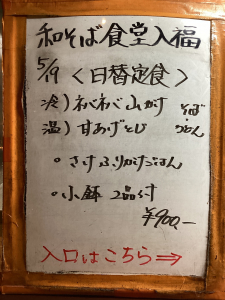 和そば食堂入福
5/19 <日替定食>
冷) ねばねば山かけ そば
温) 甘あげとじ うどん
。さけふりかけごはん
。小鉢 2品付
¥900,-
入口はこちら⇒